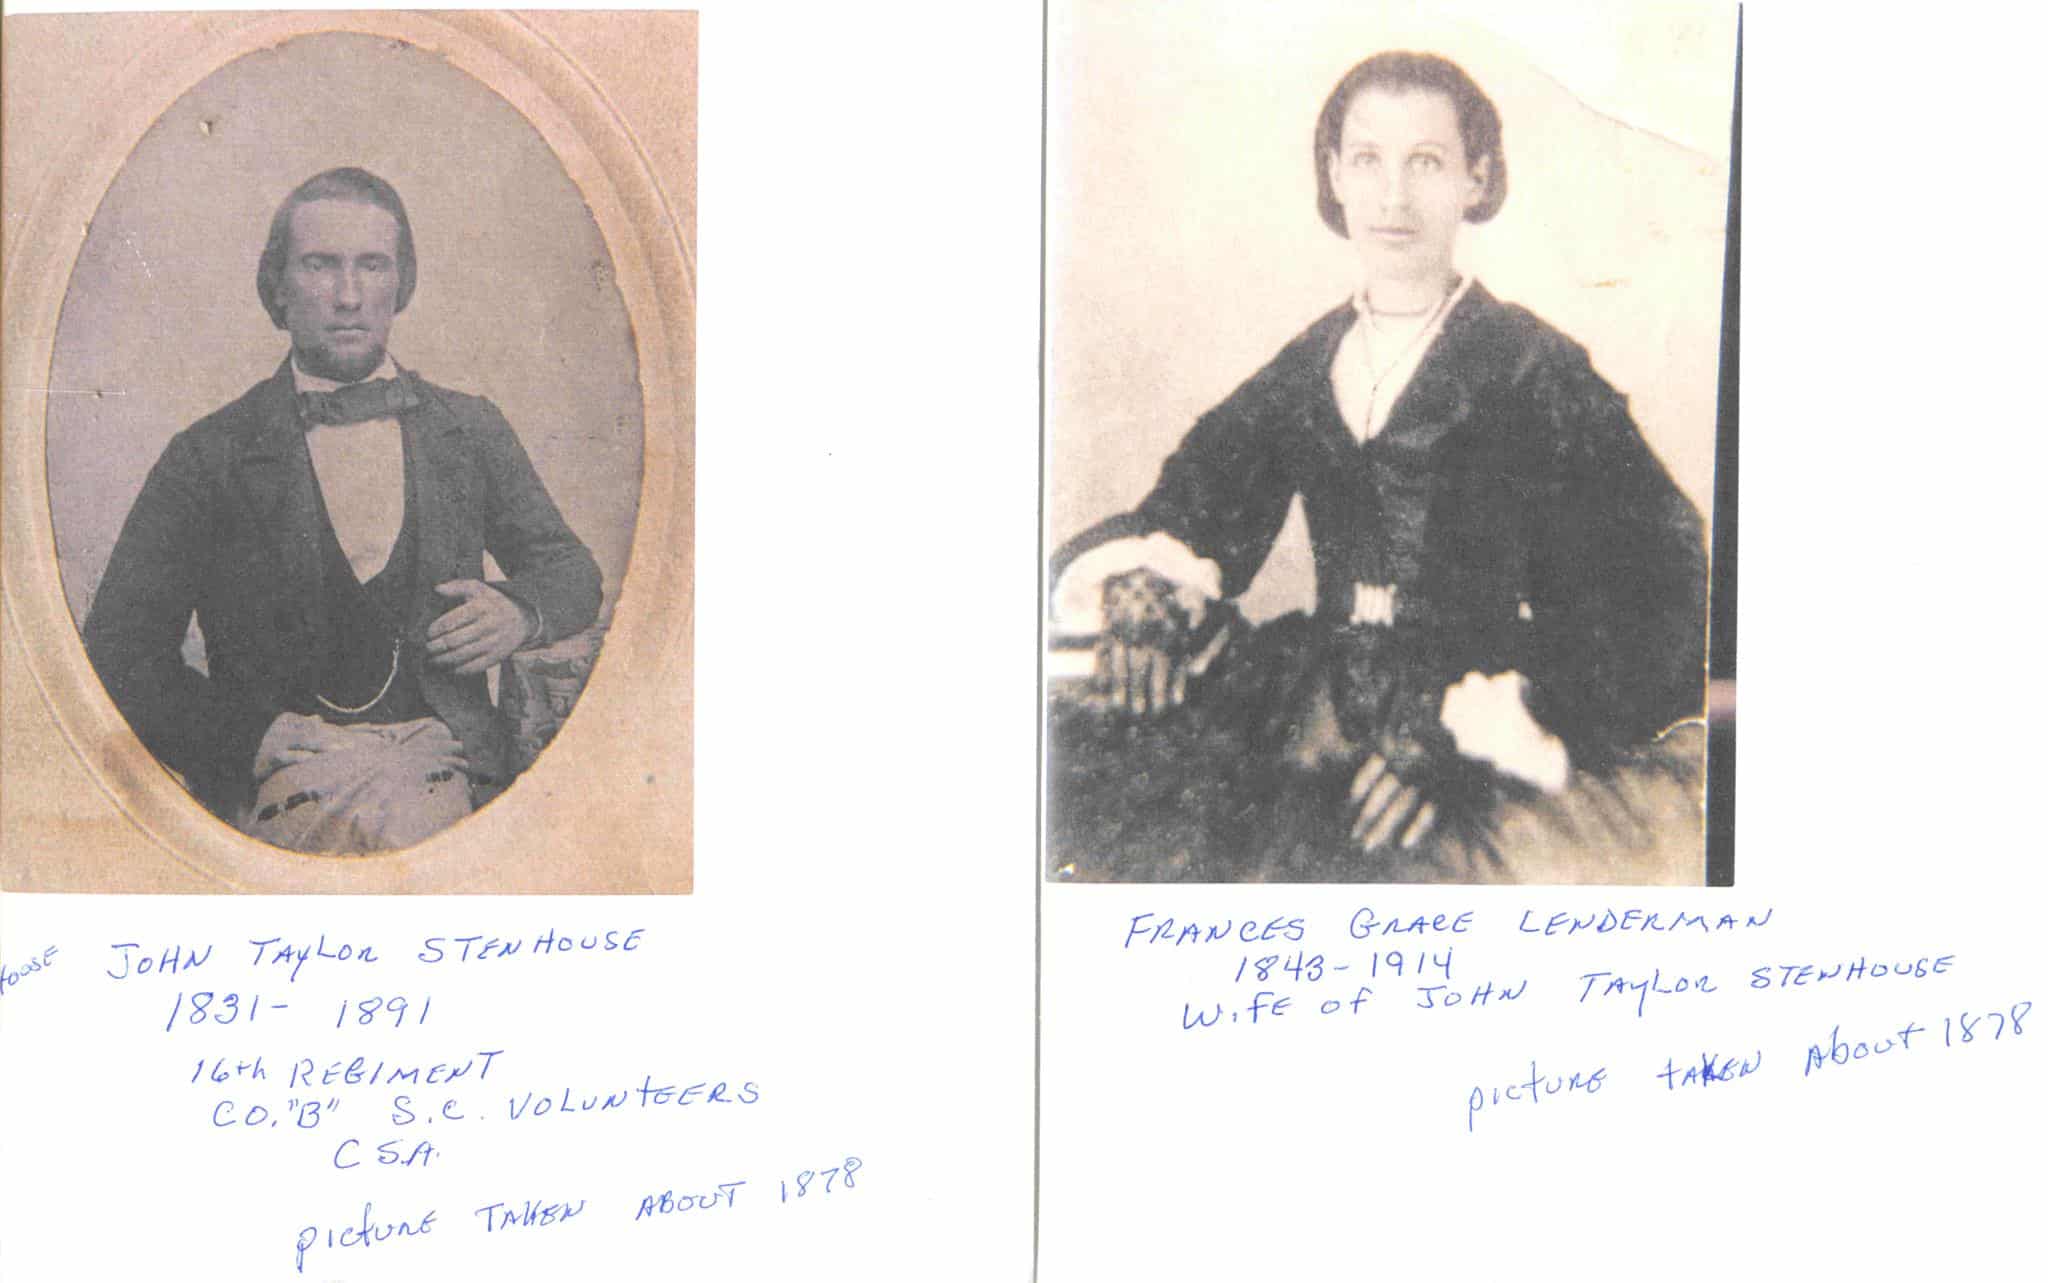 JOHN TAYLOR STENHOUSE
1831- 1891
16th REGIMENT
CO. "B" S.C. VOLUNTEERS
CSA.
picture TAKEN ABOUT 1878
FRANCES GRACE LENDERMAN
1843-1914
WifE of JOHN TAYLOR STENHOUSE
picture taKEN About 1878